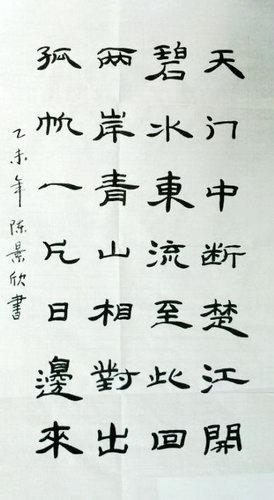 天门中断楚江開
碧水東流至此回
兩岸青山相對出
孤帆一片日邊來
乙未年陈景欣書